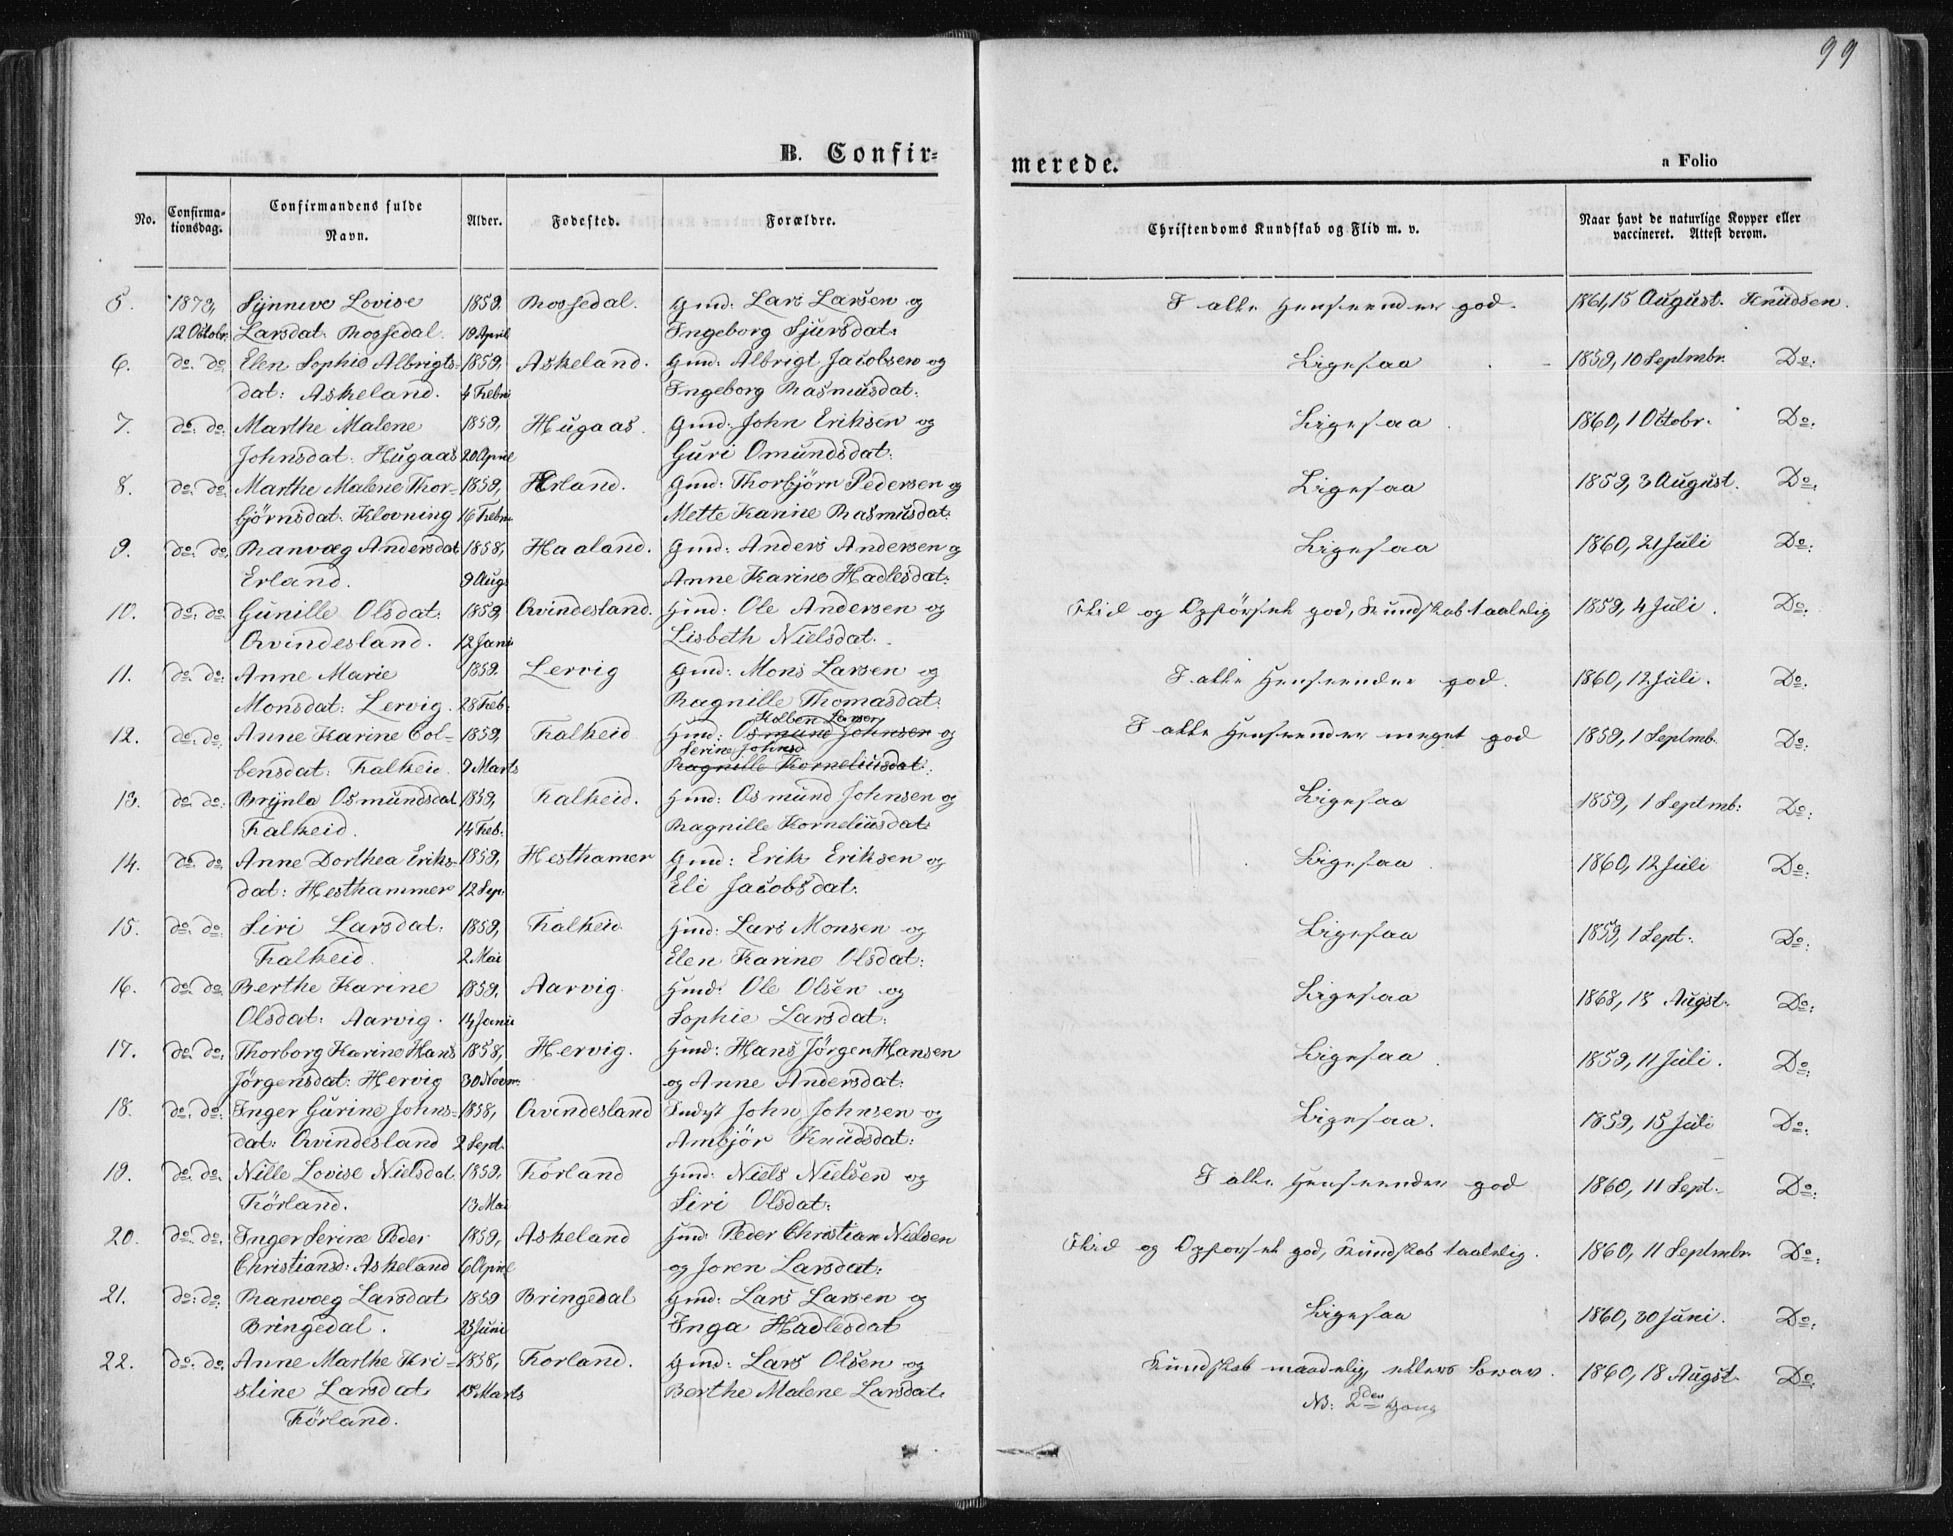 99
B. Confir=
merede.
a Folio
No.
Confirma-
tionsdag.
Confirmandens fulde
Navn.
Alder.
Fødested.
Forældre.
Christendoms Kundskab og Flid m. v.
Naar havt de naturlige Kopper eller
vaccineret. Attest derom.
5. 1873, Synneve Lovise 1859. Rossedal. Gmd: Lars Larsen og I alle Henseender god. 1861, 15 August. Knudsen.
12 Octobr: Larsdat: Rossedal. 19 April Ingeborg Sjursdat:
6. do. do. Elen Sophie Albrigts- 1859, Askeland. Gmd: Albrigt Jacobsen og Ligesaa 1859, 10 Septmbr. Do:
dat: Askeland. 4 Febr. Ingeborg Rasmusdat:
7. do. do. Marthe Malene 1859, Hugaas. Gmd: John Eriksen og Ligesaa 1860, 1 Octobr. Do:
Johnsdat: Hugaas 20 April Guri Omundsdat:
8. do. do. Marthe Malene Thor- 1859, Erland. Gmd: Thorbjörn Pedersen og Ligesaa 1859, 3 August. Do:
björnsdat: Klovning 16 Febr. Mette Karine Rasmusdat:
9. do. do. Ranvæg Andersdat 1858, Haaland. Gmd: Anders Andersen og Ligesaa 1860, 21 Juli Do:
Erland. 9 Aug. Anne Karine Hadlesdat:
10. do. do. Gunille Olsdat: 1859, Qvindesland. Hmd: Ole Andersen og Flid og Opförsel god, Kundskab taalelig 1859, 4 Juli. Do:
Qvindesland. 12 Jani Lisbeth Nielsdat.
11. do. do. Anne Marie 1859. Lervig Gmd: Mons Larsen og I alle Henseender god. 1860, 12 Juli. Do:
Monsdat: Lervig. 28 Feb. Ragnille Thomasdat:
Kolben Larsen
12. do. do. Anne Karine Col- 1859, Falkeid Hmd: Osmund Johnsen og I alle Henseender meget god 1859, 1 Septmb. Do:
Serine Johnsd
bensdat: Falkeid. 9 Marts Ragnille Korneliusdat:
13. do. do. Brynla Osmundsdat 1859, Falkeid. Hmd: Osmund Johnsen og Ligesaa 1859, 1 Septmb: Do:
Falkeid. 14 Feb. Ragnille Korneliusdat:
14. do. do. Anne Dorthea Eriks- 1859, Hesthamer Gmd: Erik Eriksen og Ligesaa 1860, 12 Juli Do:
dat: Hesthammer 12 Sep. Eli Jacobsdat:
15. do. do. Siri Larsdat: 1859, Falkeid. Hmd: Lars Monsen og Ligesaa 1859, 1 Sept: Do:
Falkeid. 2 Mai Elen Karine Olsdat:
16. do. do. Berthe Karine 1859. Aarvig. Hmd: Ole Olsen og Ligesaa 1868, 18 Augst. Do:
Olsdat: Aarvig. 14 Jani Sophie Larsdat:
17. do. do. Thorborg Karine Hans 1858, Hervig. Hmd: Hans Jörgen Hansen Ligesaa 1859, 11 Juli. Do:
Jörgensdat: Hervig 30 Novm. og Anne Andersdat:
18. do. do. Inger Gurine Johns- 1858, Qvindesland Inderst John Johnsen og Ligesaa. 1859, 15 Juli Do:
dat: Qvindesland 2 Sept. Ambjör Knudsdat:
19. do. do. Nille Lovise Nielsdat 1859. Förland Gmd: Niels Nielsen og I alle Henseender god 1860, 11 Sept. Do:
Förland. 13 Mai Siri Olsdat:
20. do. do. Inger Serine Peder 1859, Askeland Hmd: Peder Christian Nielsen Flid og Opförsel god, Kundskab taalelig. 1860, 11 Septmbr. Do:
Christiansd: Askeland 6 April og Joren Larsdat:
21. do. do. Ranvæg Larsdat 1859 Bringedal Gmd: Lars Larsen og Ligesaa 1860, 30 Juni. Do:
Bringedal. 23 Juni Inga Hadlesdat
22. do. do. Anne Marthe Kri- 1858, Förland. Gmd: Lars Olsen og Kundskab maadelig, ellers 1860, 18 Augst. Do:
stine Larsdat 18 Marts Berthe Malene Larsdat. NB: 2den Gang
Förland.